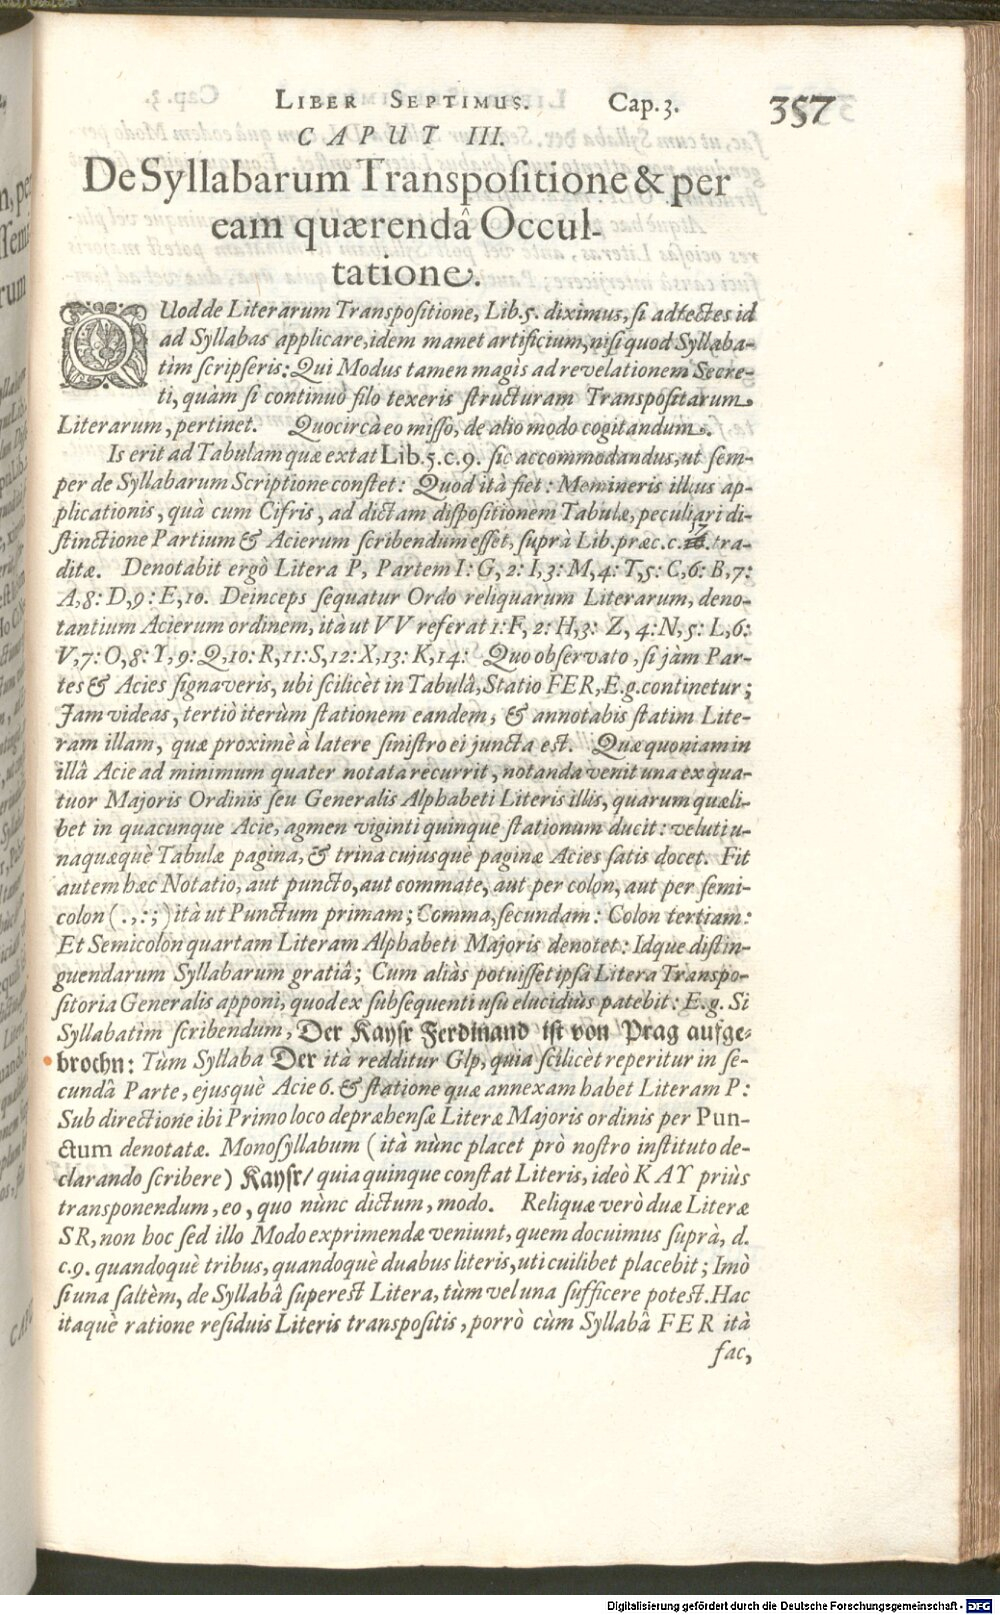 LIBER SEPTIMUS. Cap. 3. 357
CAPUT III.
De Syllabarum Transpoſitione & per
eam quærendâ Occul-
tatione.
QUod de Literarum Transpoſitione, Lib. 5. diximus, ſi ad tectes id
ad Syllabas applicare, idem manet artificium, niſi quod Syllaba-
tìm ſcripſeris: Qui Modus tamen magìs ad revelationem Secre-
ti, quàm ſi continuò filo texeris ſtructuram Transpoſitarum
Literarum, pertinet. Quocircà eo miſſo, de alio modo cogitandum.
Is erit ad Tabulam quæ extat Lib. 5. c. 9. ſic accommodandus, ut ſem-
per de Syllabarum Scriptione conſtet: Quod ità fiet: Memineris illius ap-
plicationis, quà cum Cifris, ad dictam diſpoſitionem Tabulæ, peculiari di-
ſtinctione Partium & Acierum ſcribendum eſſet, ſuprà Lib. præc. c. . tra-
ditæ. Denotabit ergò Litera P, Partem I: G, 2: I, 3: M, 4: T, 5: C, 6: B, 7:
A, 8: D, 9: E, 10. Deinceps ſequatur Ordo reliquarum Literarum, deno-
tantium Acierum ordinem, ità ut VV referat 1: F, 2: H, 3: Z, 4: N, 5: L, 6:
V, 7: O, 8: Y, 9: Q, 10: R, 11: S, 12: X, 13: K, 14: Quo obſervato, ſi jàm Par-
tes & Acies ſignaveris, ubi ſcilicèt in Tabulâ, Statio FER, E.g. continetur;
Jam videas, tertiò iterùm ſtationem eandem, & annotabis ſtatim Lite-
ram illam, quæ proximè à latere ſiniſtro ei juncta eſt. Quæ quoniam in
illâ Acie ad minimum quater notata recurrit, notanda venit una ex qua-
tuor Majoris Ordinis ſeu Generalis Alphabeti Literis illis, quarum quæli-
bet in quacunque Acie, agmen viginti quinque ſtationum ducit: veluti u-
naquæquè Tabulæ pagina, & trina cujusquè paginæ Acies ſatis docet. Fit
autem hæc Notatio, aut puncto, aut commate, aut per colon, aut per ſemi-
colon ( . , : ; ) ità ut Punctum primam; Comma, ſecundam: Colon tertiam:
Et Semicolon quartam Literam Alphabeti Majoris denotet: Idque diſtin-
guendarum Syllabarum gratiâ; Cum aliàs potuiſſet ipſa Litera Transpo-
ſitoria Generalis apponi, quod ex ſubſequenti uſu elucidiùs patebit: E.g. Si
Syllabatim ſcribendum, Der Kayſr Ferdinand iſt von Prag aufge-
brochn: Tùm Syllaba Der ità redditur Glp, quia ſcilicèt reperitur in ſe-
cundâ Parte, ejusquè Acie 6. & ſtatione quæ annexam habet Literam P:
Sub directione ibi Primo loco depræhenſæ Literæ Majoris ordinis per Pun-
ctum denotatæ. Monoſyllabum ( ità nùnc placet prò noſtro inſtituto de-
clarando ſcribere ) Kayſr / quia quinque conſtat Literis, ideò KAY priùs
transponendum, eo, quo nùnc dictum, modo. Reliquæ verò duæ Literæ
SR, non hoc ſed illo Modo exprimendæ veniunt, quem docuimus ſuprà, d.
c. 9. quandoquè tribus, quandoquè duabus literis, uti cuilibet placebit; Imò
ſi una ſaltèm, de Syllabâ ſupereſt Litera, tùm vel una ſufficere poteſt. Hac
itaquè ratione reſiduis Literis transpoſitis, porrò cùm Syllabâ FER ità
fac,
Digitalisierung gefördert durch die Deutsche Forschungsgemeinschaft - DFG